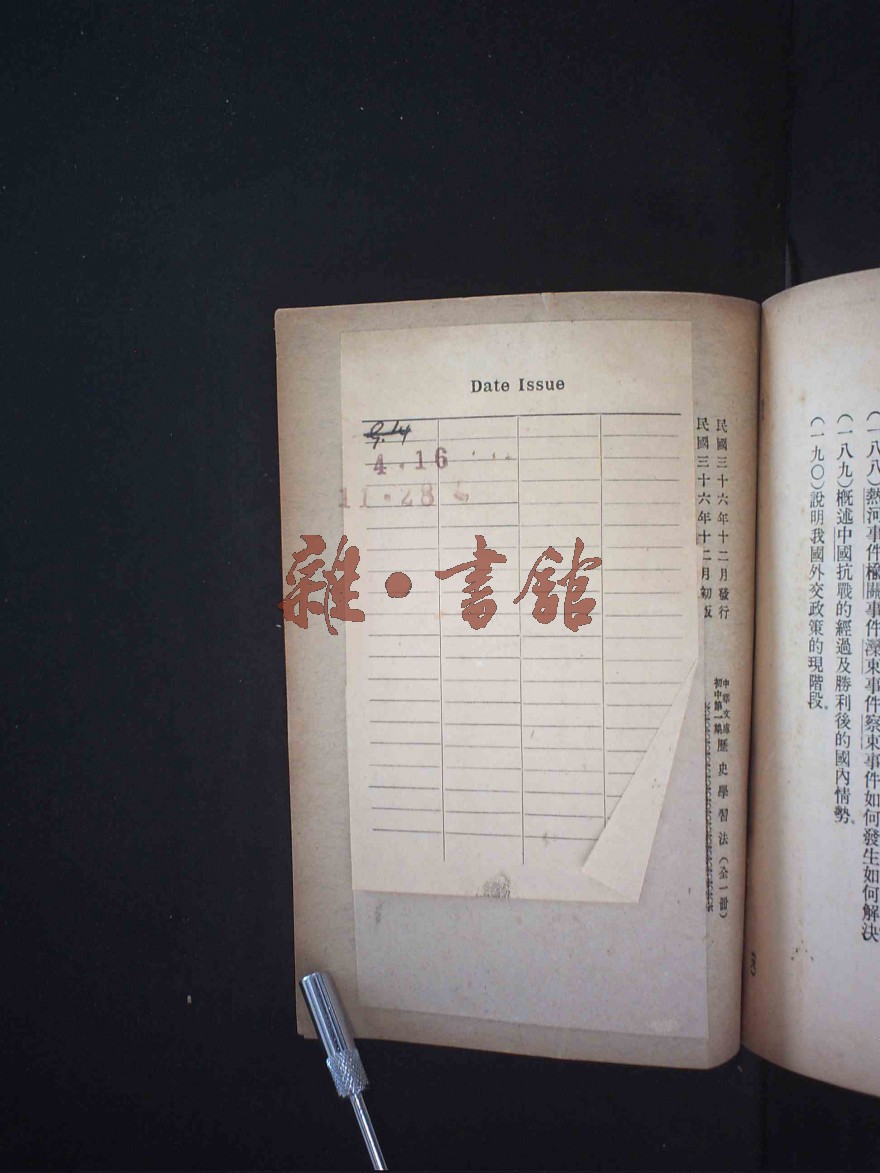 (一八八)熱河事件榆關事件灤東事件察東事件如何發生如何解決
(一八九)概述中國抗戰的經過及勝利後的國內情勢。
(一九〇)說明我國外交政策的現階段。
民國三十六年十二月發行
民國三十六年十二月初版
中華文庫
初中第一集
歷史學習法(全一冊)
Date Issue
9.14
4.16
11.28
雜·書館